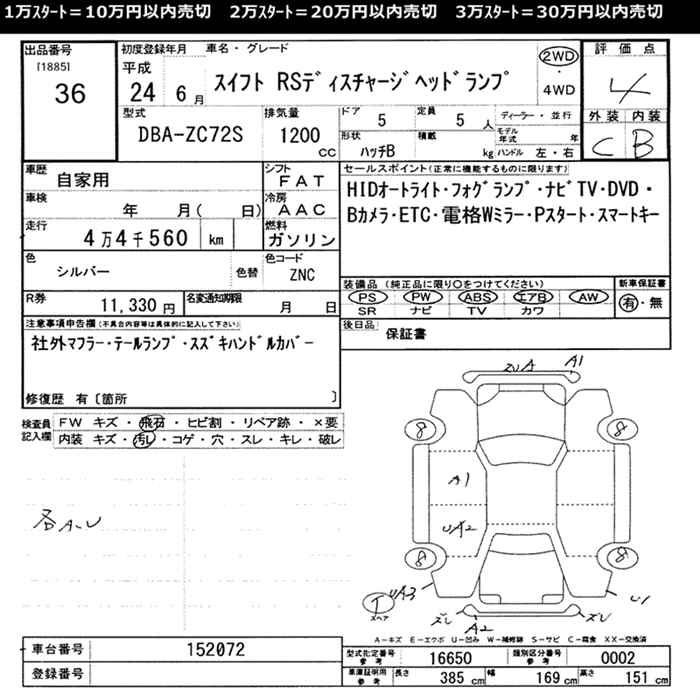 1万ｽﾀｰﾄ＝10万円以内売切　2万ｽﾀｰﾄ＝20万円以内売切　3万ｽﾀｰﾄ＝30万円以内売切
出品番号
[1885]
36
初度登録年月
平成
24 6 月
車名・グレード
スイフト RSディスチャージヘッドランプ
2WD
4WD
評価点
4
型式
DBA-ZC72S
排気量
1200
CC
ドア
5
定員
5 人
ディーラー・並行
モデル年式 年
形状
ハッチB
積載
kg
ハンドル 左・右
外装 内装
C B
車歴
自家用
シフト
FAT
車検
年 月( 日)
冷房
AAC
走行
4万4千560 km
燃料
ガソリン
色
シルバー
色替
色コード
ZNC
R券
11,330 円
名変通知期限
月 日
セールスポイント(正常に機能するものに限ります)
HIDオートライト・フォグランプ・ナビTV・DVD・
Bカメラ・ETC・電格Wミラー・Pスタート・スマートキー
装備品 (純正品に限り○をつけてください)
PS PW ABS エアB AW
SR ナビ TV カワ
新車保証書
有・無
後日品
保証書
注意事項申告欄(不具合内容等は具体的に記入して下さい)
社外マフラー・テールランプ・スズキハンドルカバー
修復歴 有〔箇所 〕
検査員
記入欄
FW キズ・飛石・ヒビ割・リペア跡・×要
内装 キズ・汚レ・コゲ・穴・スレ・キレ・破レ
各A-U
ズレA
A1
8
8
A1
UA2
8
8
T
スペア
UA3
ズレ
A2
ズレ
U1
A－キズ E－エクボ U－凹み W－補修跡 S－サビ C－腐食 XX－交換済
車台番号
152072
登録番号
型式指定番号
参考
16650
類別区分番号
参考
0002
車庫証明用
参考
長さ
385 cm
幅
169 cm
高さ
151 cm